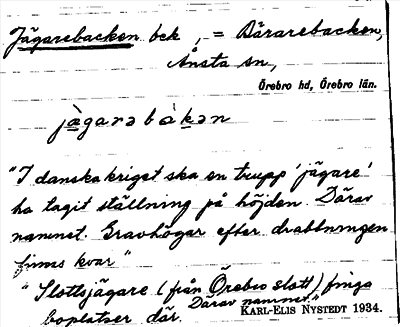 Jägarebacken bck, = Bärarebacken,
Ånsta sn,
Örebro hd, Örebro län.
jägarəbàkən
"I danska kriget ska en trupp 'jägare'
ha tagit ställning på höjden. Därav
namnet. Gravhögar efter drabbningen
finns kvar"
"Slottsjägare (från Örebro slott) finga
boplatser där. Därav namnet."
KARL-ELIS NYSTEDT 1934.